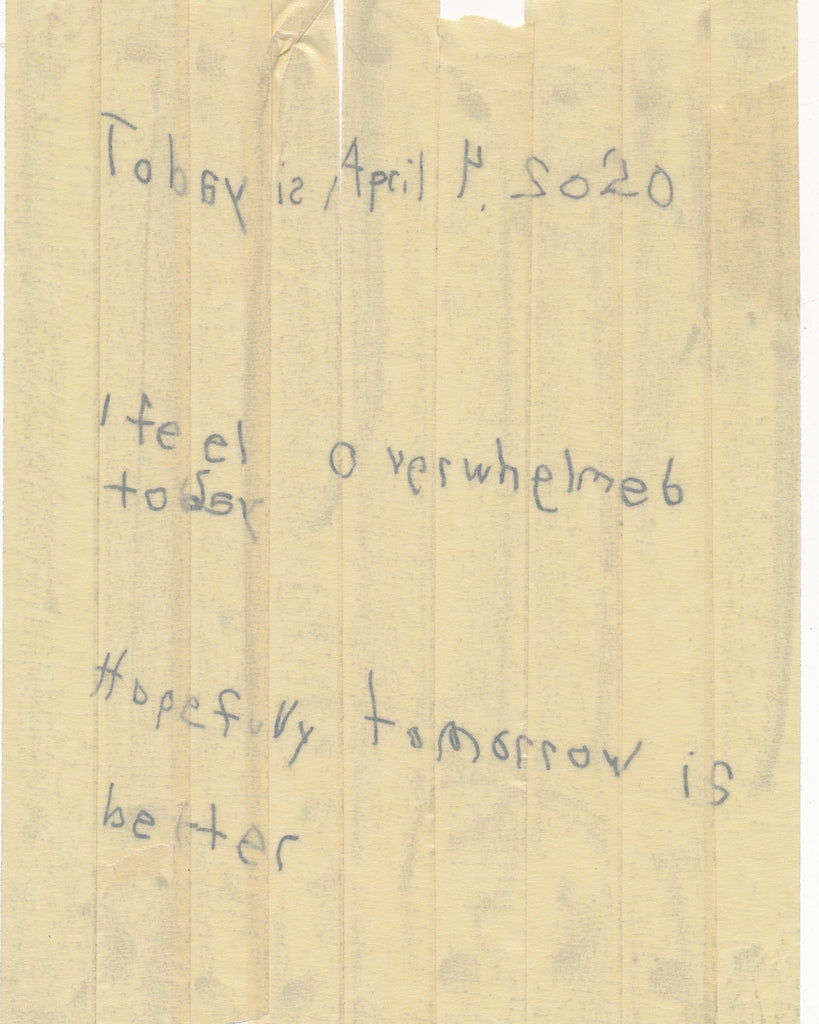 Today is, April 4, 2020
I feel overwhelmed
today
Hopefully tomorrow is
better